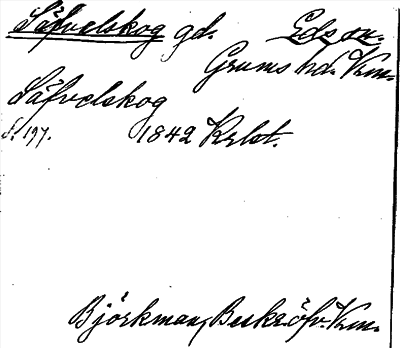 Säfvelskog gd. Eds sn.
Grums hd. Vrm.
Säfvelskog
S. 197. 1842 Krlst.
Björkman, Beskr. öfv. Vrm.